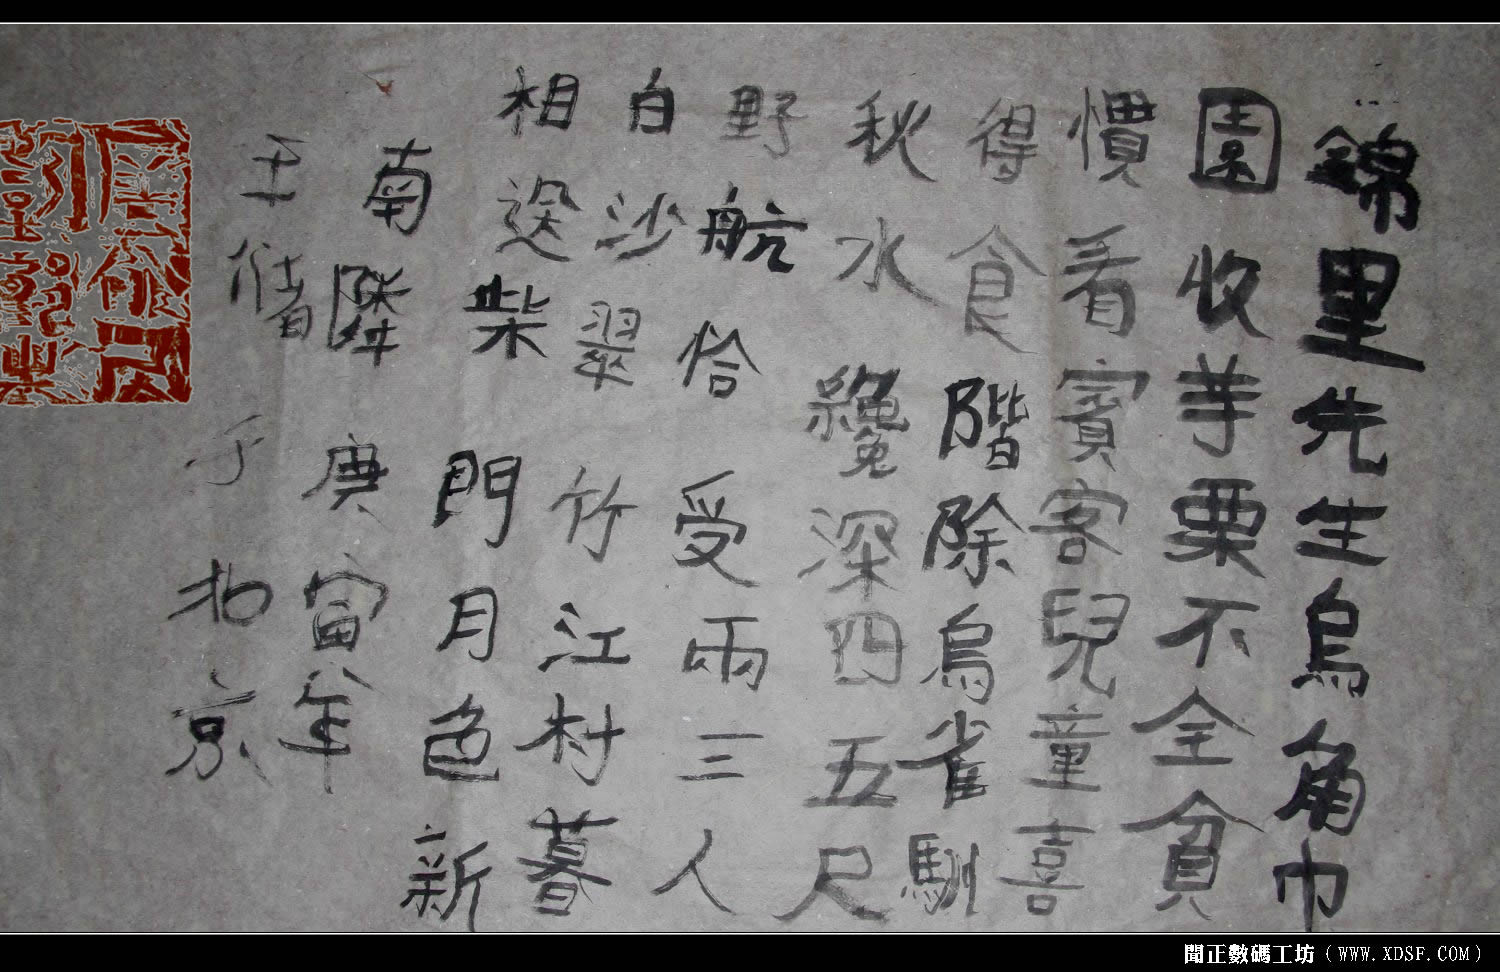 錦里先生烏角巾
園收芋栗不全貧
慣看賓客兒童喜
得食階除烏雀馴
秋水纔深四五尺
野航恰受兩三人
白沙翠竹江村暮
相送柴門月色新
南隣 庚寅年
王脩 于北京
聞正數碼工坊（WWW.XDSF.COM）